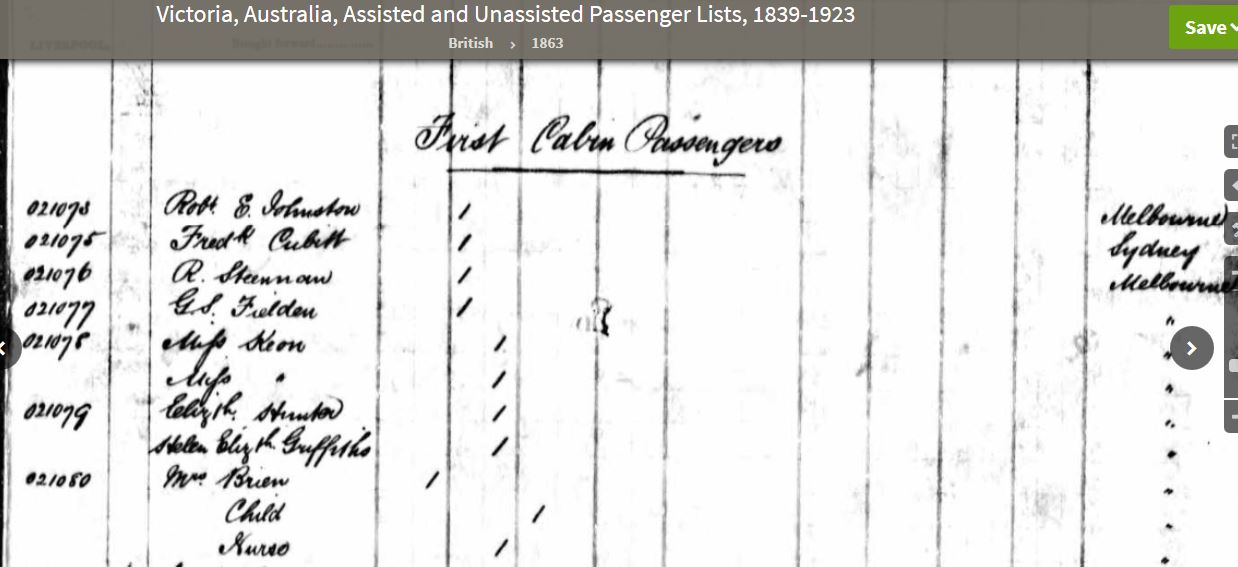 Victoria, Australia, Assisted and Unassisted Passenger Lists, 1839-1923
Save
British > 1863
LIVERPOOL,
Brought forward
First Cabin Passengers
021073 Robt. E. Johnston / Melbourne
021075 Fredk Cubitt / Sydney
021076 R. / Melbourne
021077 G.S. Fielden / "
021078 Miss Keon / "
Miss " / "
021079 Elizth. Hunter / "
Helen Elizth Griffiths / "
021080 Mrs. Brien / "
Child / "
Nurse / "